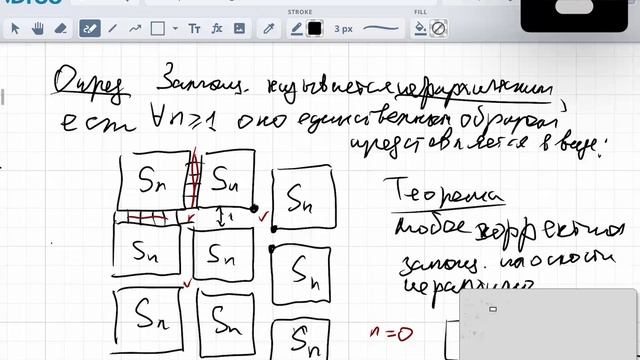 STROKE
FILL
3 px
Опред Замощ. называется иерархическим,
если ∀n≥1 оно единственным образом
представляется в виде:
Sn Sn Sn
1
Теорема
любое корректное
замощ. плоскости
Sn Sn Sn
иерархично
Sn Sn Sn
n=0